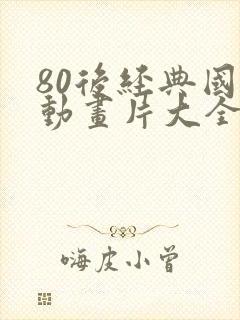 80後經典國
動畫片大全
嗨皮小曾